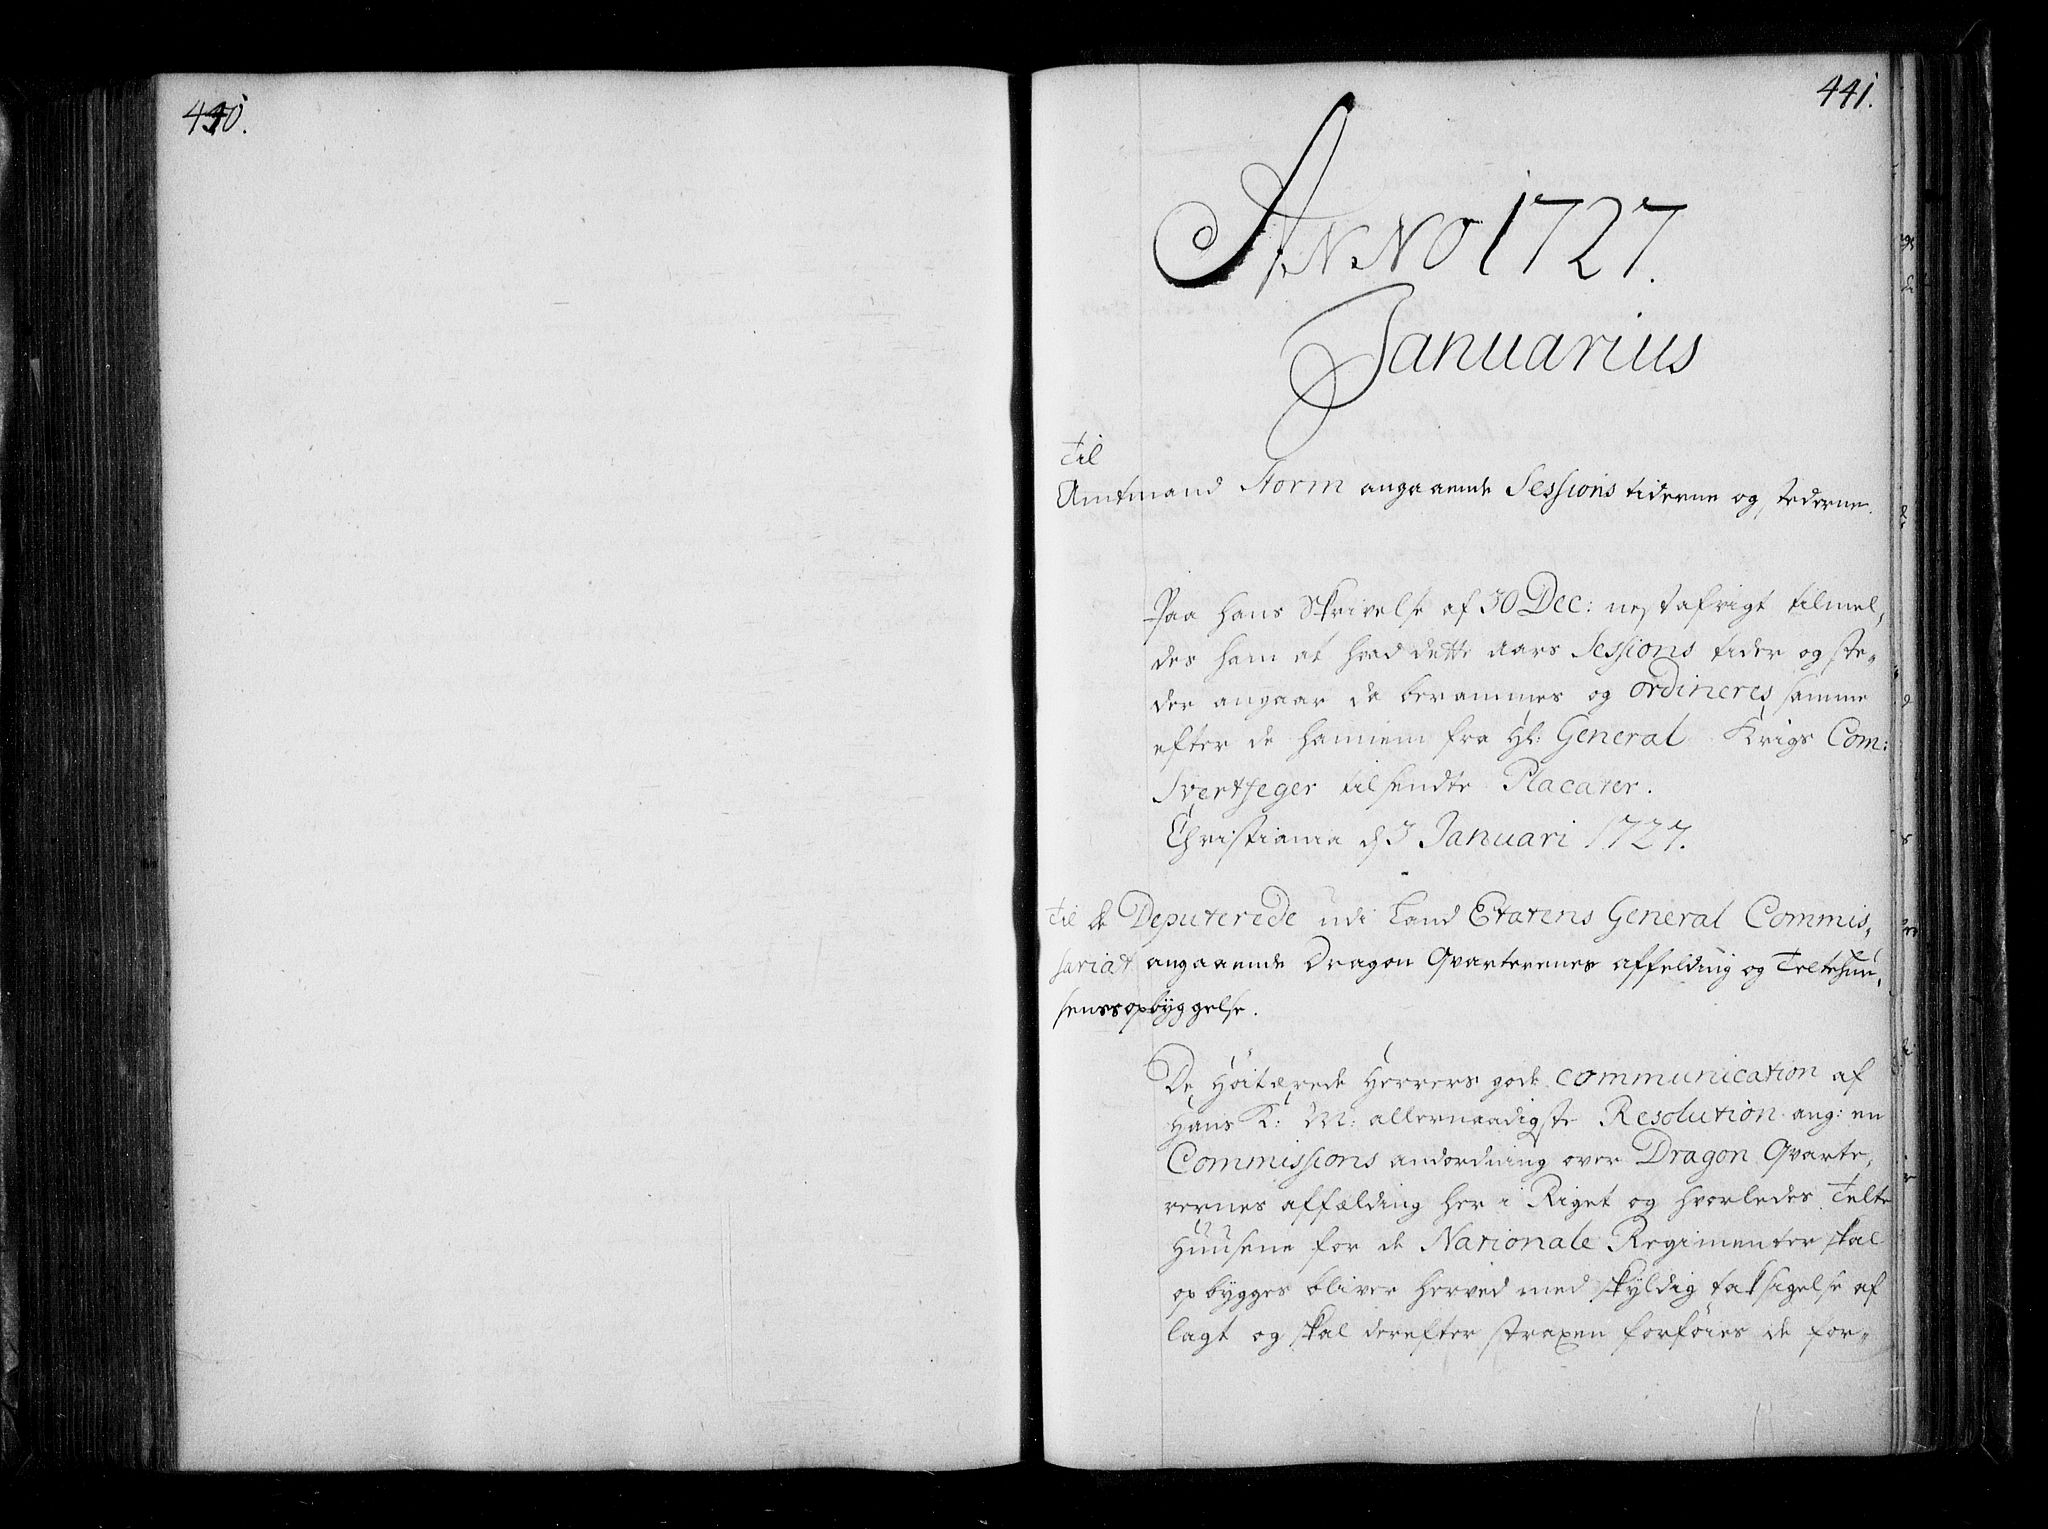 440.
441.
ANNO 1727.
Januarius
Til
Amtmand Storm angaaende Sessions tiderne og stederne.
Paa hans Skrivelse af 30 Dec: nestafvigt tilmel,
des ham at hvad dette aars Sessions tider og ste,,
der angaar da berammes og ordineres samme
efter de hannem fra Hl: General Krigs Com:
Svertfeger tilsendte Placater.
Christiania d 3 Januari 1727.
Til de Deputerede udi Land Etatens General Commis,,
sariat angaaende Dragon Qvarterenes affelding og Teltehuu,,
senes opbyggelse.
De Höitærede Herrers gode communication af
Hans K: M: allernaadigste Resolution ang: en
Commissions anordning over Dragon Qvarte,,
rernes affælding her i Riget og hvorledes Telte
Huusene for de Nationale Regimenter skal
opbygges bliver herved med skyldig taksigelse af
lagt og skal derefter straxen forföies de for,,